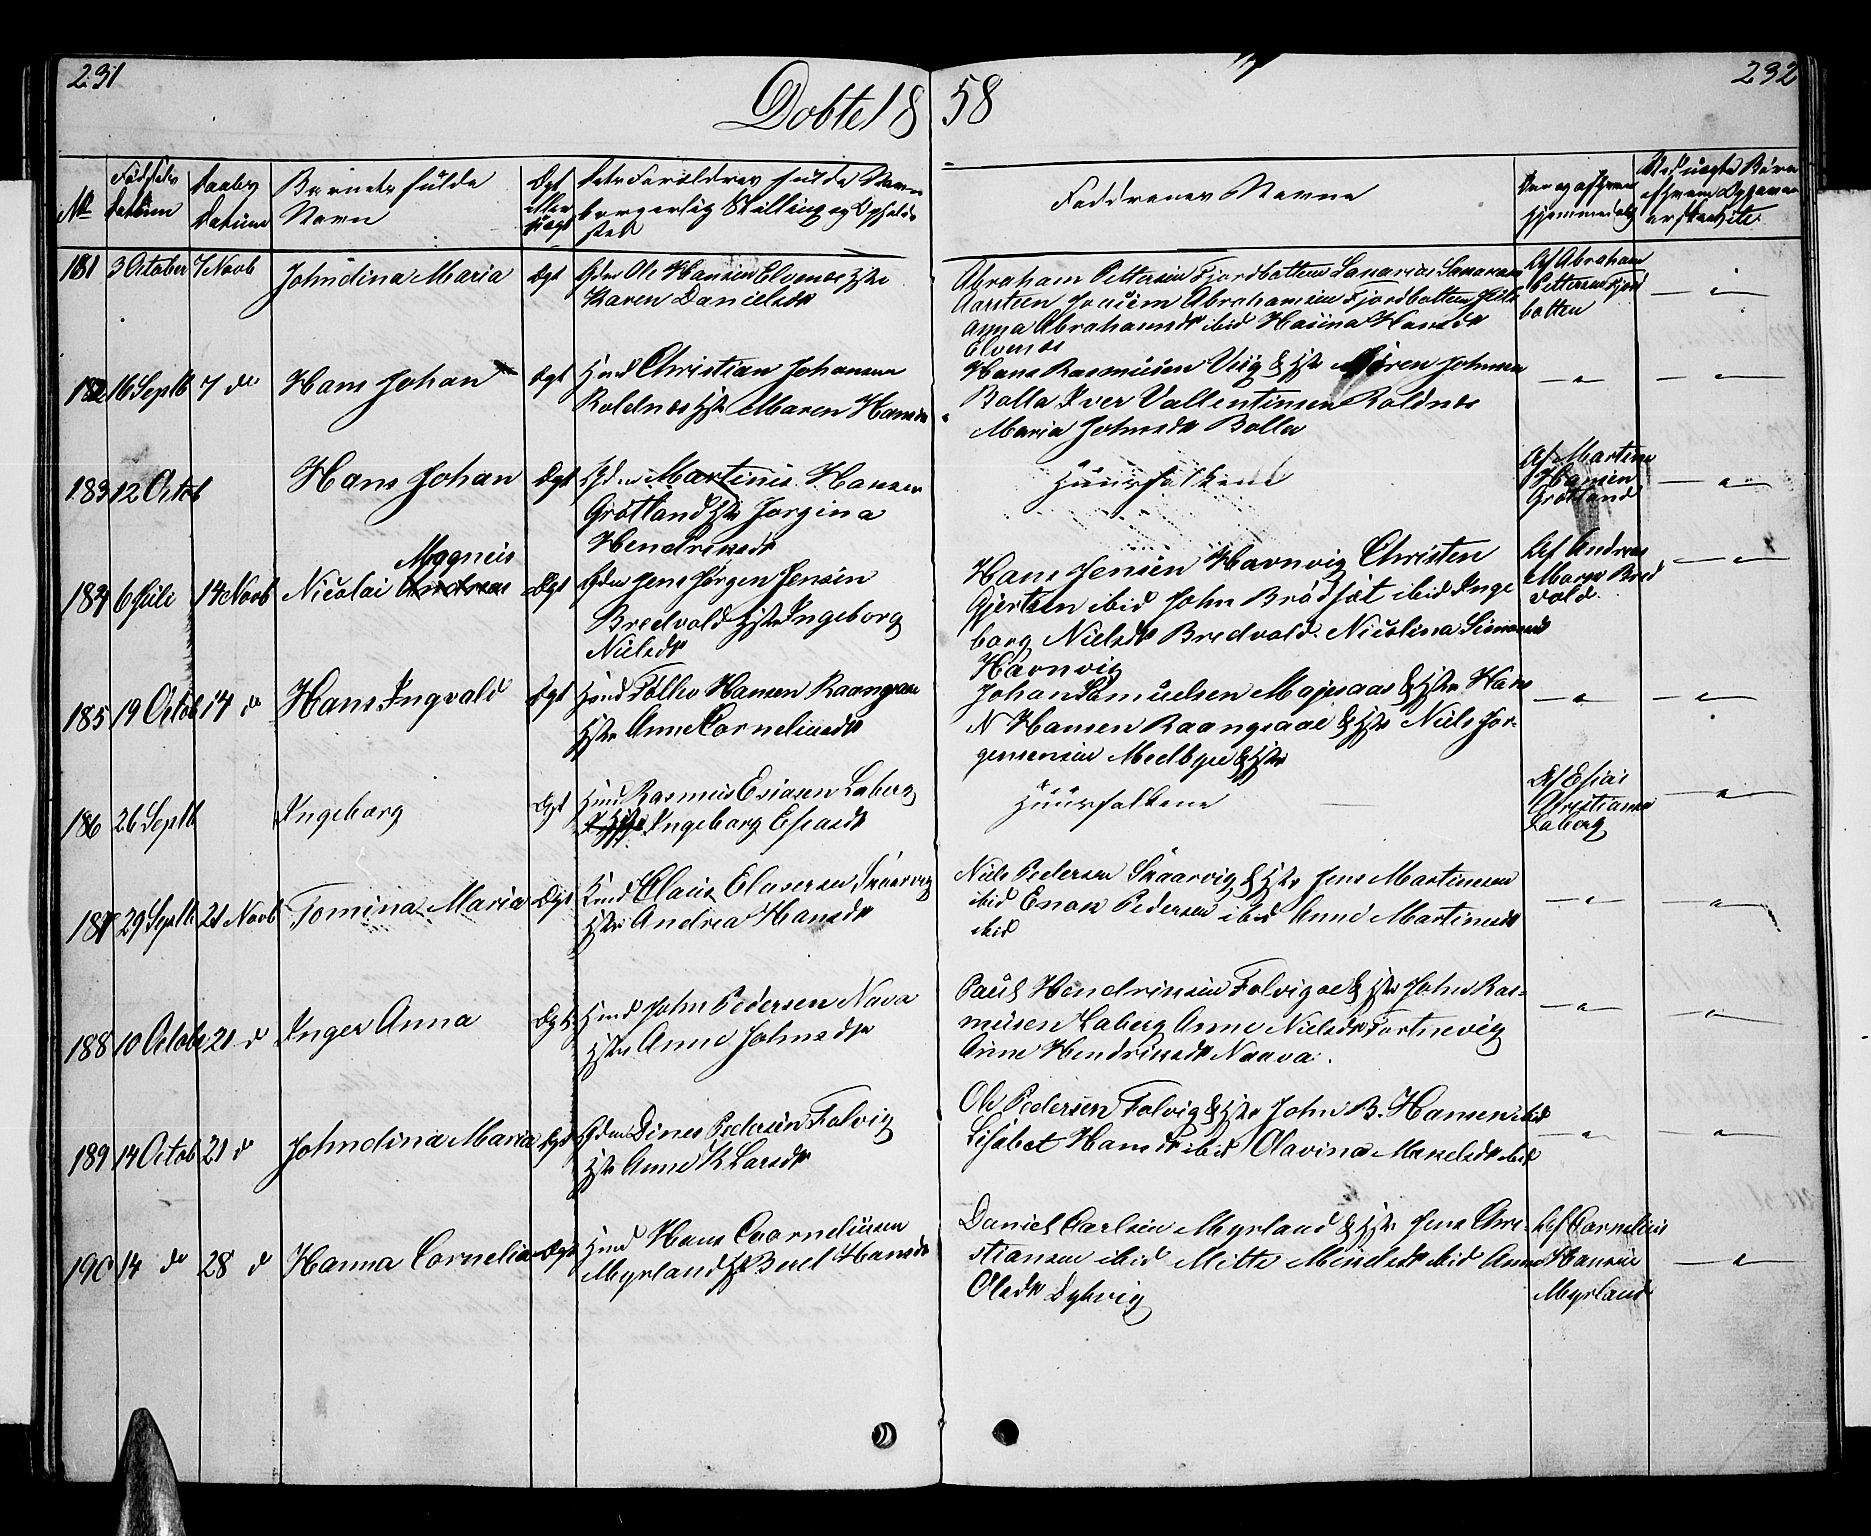 231
232
Døbte 18 58
No
Fødsels Datum
Daabs Datum
Barnets fulde Navn
Ægt eller uægt
Forældres fulde Navn borgerlig Stilling og Opholdssted
Faddernes Navne
hjemmedøbt
181 3 October 7 Novb Johndina Maria Ægt Ole Hansen Elvenæs Hstr
Karen Danielsdr
Abraham Pettersen Fjordbotten
Joacim Abrahamsen Fjordbotten
Anna Abrahamsdr ibid Hansdr
Elvenæs
Af Abraham
Pettersen Fjord
botten
182 16 Septb 7 do Hans Johan Ægt Hmd Christian Johansen
Roldnæs Hstr Maren Hansdr
Hans Rasmussen Viig & Hstr Søren Johnsen
Bolla Iver Vallentinsen Roldnæs
Maria Johnsdr Bolla
183 12 Octob Hans Johan Ægt Martinus Hansen
Grøtland Hstr Jorgina
Hendriksdr
Huusfolkene
Af Martinus
Hansen
Grøtland
184 6 Juli 14 Novb Nicolai Andreas Magnus Ægt Jens Jørgen Jensen
Bredvold Hstr Ingeborg
Nielsdr
Hans Jensen Havnvig Christen
Gjertsen ibid John Brødsæt ibid Inge
borg Nielsdr Bredvold. Nicolina Simonsdr
Havnvig
Af Andreas
Bred
vold.
185 19 Octob 14 do Hans Ingvald Ægt Hmd Hansen
Hstr Anne Corneliusdr
Johan Samuelsen & Hstr Hans
N Hansen & Hstr Niels Jør-
gensen Medbye & Hstr
186 26 Septb Ingeborg Ægt Hmd Rasmus Esiasen Laberg
Ingeborg Esiasdr
Huusfolkene
Af Esias
Christiansen
Laberg
187 29 Septb 21 Novb Tomina Maria Ægt Hmd Claus Clausen Skaarvig
Hstr Andrea Hansdr
Niels Pedersen Skaarvig & Hstr Jens Martinsen
ibid Enok Pedersen ibid Anne Martinusdr
ibid
188 10 Octob 21 d Inger Anna Ægt Hmd John Pedersen Nava
Hstr Anne Johnsdr
Paul Hendriksen & Hstr John Ras-
musen Laberg Anne Nielsdr Fortnevig
Anne Hendriksdr Naava.
189 14 Octob 21 d Johndina Maria Ægt Dines Pedersen Folvig
Hstr Anne K Larsdr
Ole Pedersen Folvig & Hstr John B. Hansen ibid
Lisabet Hansdr ibid Olavina ibid
190 14 do 28 d Hanna Cornelia Ægt Hmd Hans Corneliussen
Myrland Hstr Berel Hansdr
Daniel Carlsen Myrland & Hstr Jens Chri-
stiansen ibid Mitte ibid Anne
Olsdr Dybvig
Af Cornelius
Hansen
Myrland